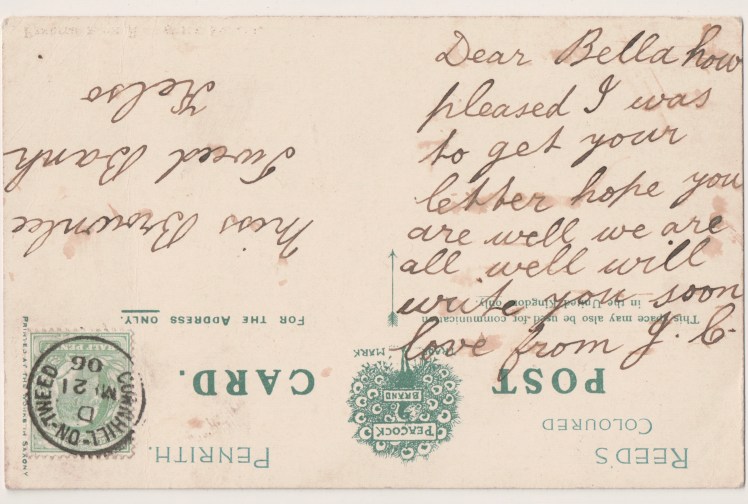 Dear Bella how
pleased I was
to get your
letter hope you
are well we are
all well will
write you soon
love from J. C
REED'S
COLOURED
PENRITH.
POST
CARD.
TRADE MARK
PEACOCK
BRAND
This space may also be used for communication
in the United Kingdom only.
FOR THE ADDRESS ONLY.
Miss Brownlee
Tweed Bank
Kelso
CORNHILL-ON-TWEED
D
MY 21
06
HALFPENNY